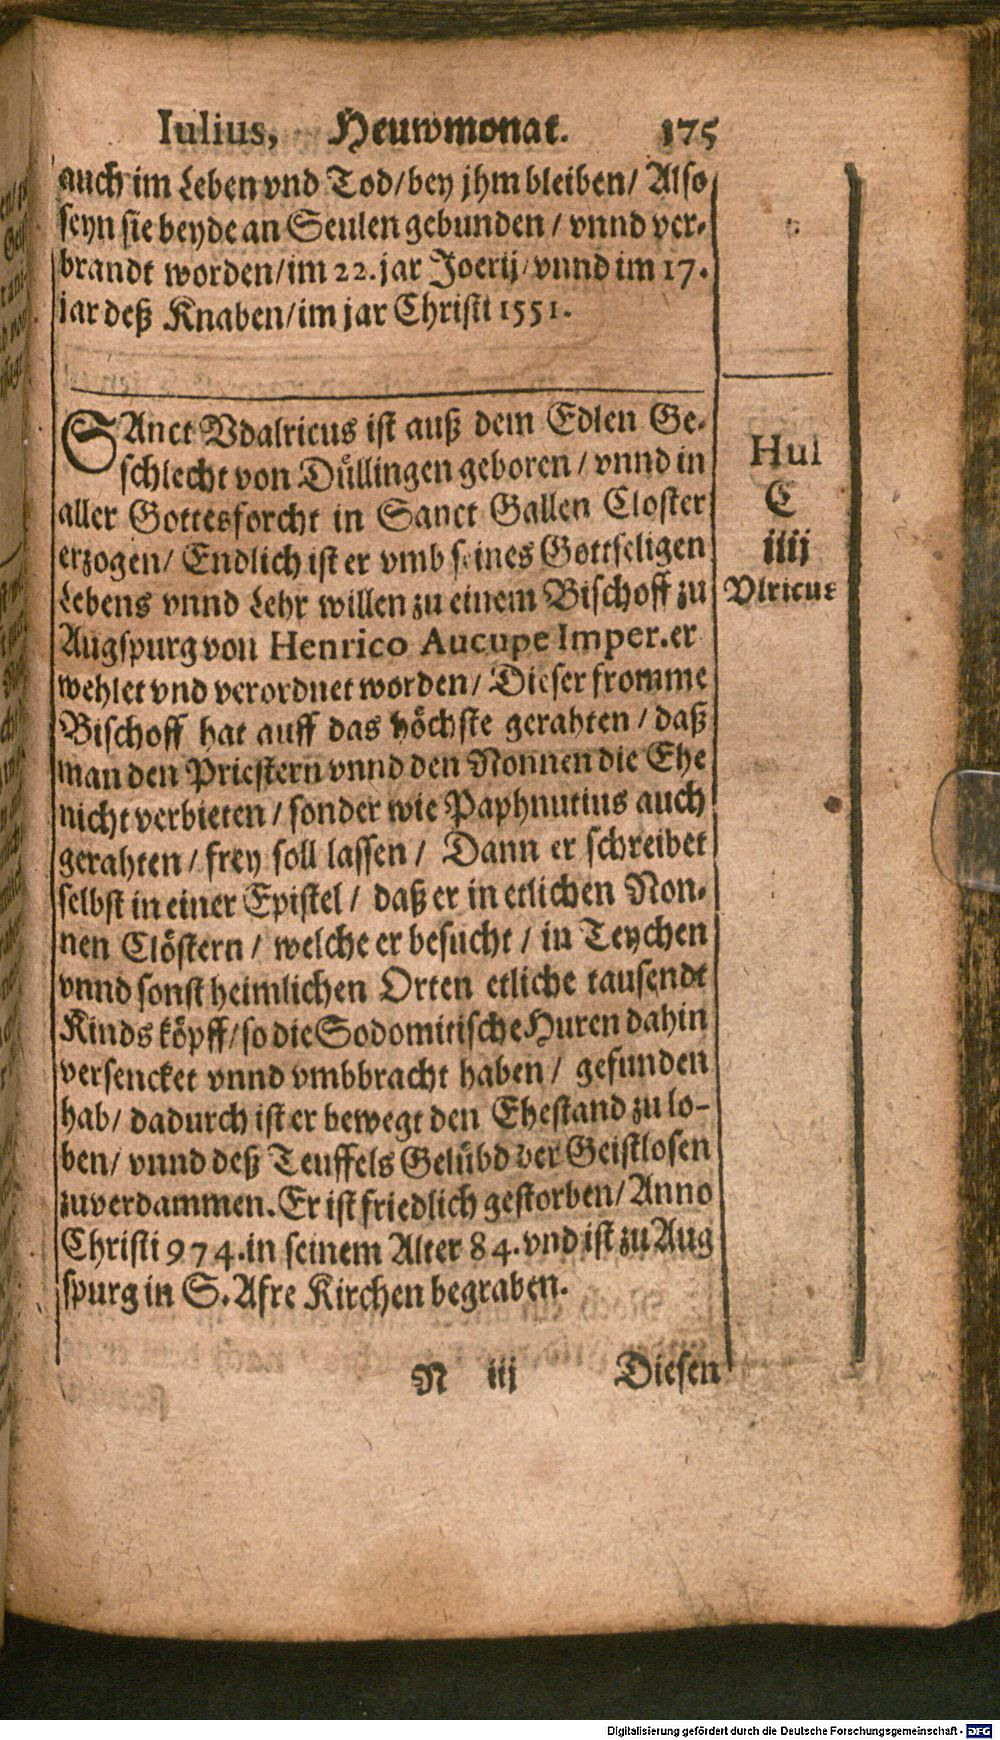 Iulius, Heuwmonat. 175
auch im Leben vnd Tod/bey jhm bleiben/ Also
seyn sie beyde an Seulen gebunden / vnnd ver-
brandt worden/im 22. jar Joerij/vnnd im 17.
jar deß Knaben/im jar Christi 1551.
SAnct Vdalricus ist auß dem Edlen Ge-
schlecht von Düllingen geboren / vnnd in
aller Gottesforcht in Sanct Gallen Closter
erzogen/ Endlich ist er vmb seines Gottseligen
Lebens vnnd Lehr willen zu einem Bischoff zu
Augspurg von Henrico Aucupe Imper.er
wehlet vnd verordnet worden/ Dieser fromme
Bischoff hat auff das höchste gerahten / daß
man den Priestern vnnd den Nonnen die Ehe
nicht verbieten / sonder wie Paphnutius auch
gerahten / frey soll lassen / Dann er schreibet
selbst in einer Epistel / daß er in etlichen Non-
nen Clöstern / welche er besucht / in Teychen
vnnd sonst heimlichen Orten etliche tausendt
Kinds köpff/so die Sodomitische Huren dahin
versencket vnnd vmbbracht haben / gefunden
hab/ dadurch ist er bewegt den Ehestand zu lo-
ben/ vnnd deß Teuffels Gelübd der Geistlosen
zuverdammen. Er ist friedlich gestorben/ Anno
Christi 974. in seinem Alter 84. vnd ist zu Aug
spurg in S. Afre Kirchen begraben.
Hul
C
iiij
Vlricus
N iij Diesen
Digitalisierung gefördert durch die Deutsche Forschungsgemeinschaft - DFG